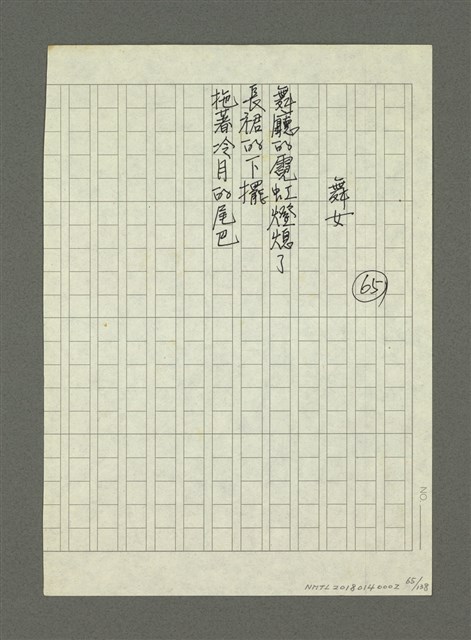 65
舞女
舞廳的霓虹燈熄了
長裙的下擺
拖著冷月的尾巴
NO
NMTL20180140002 65/108